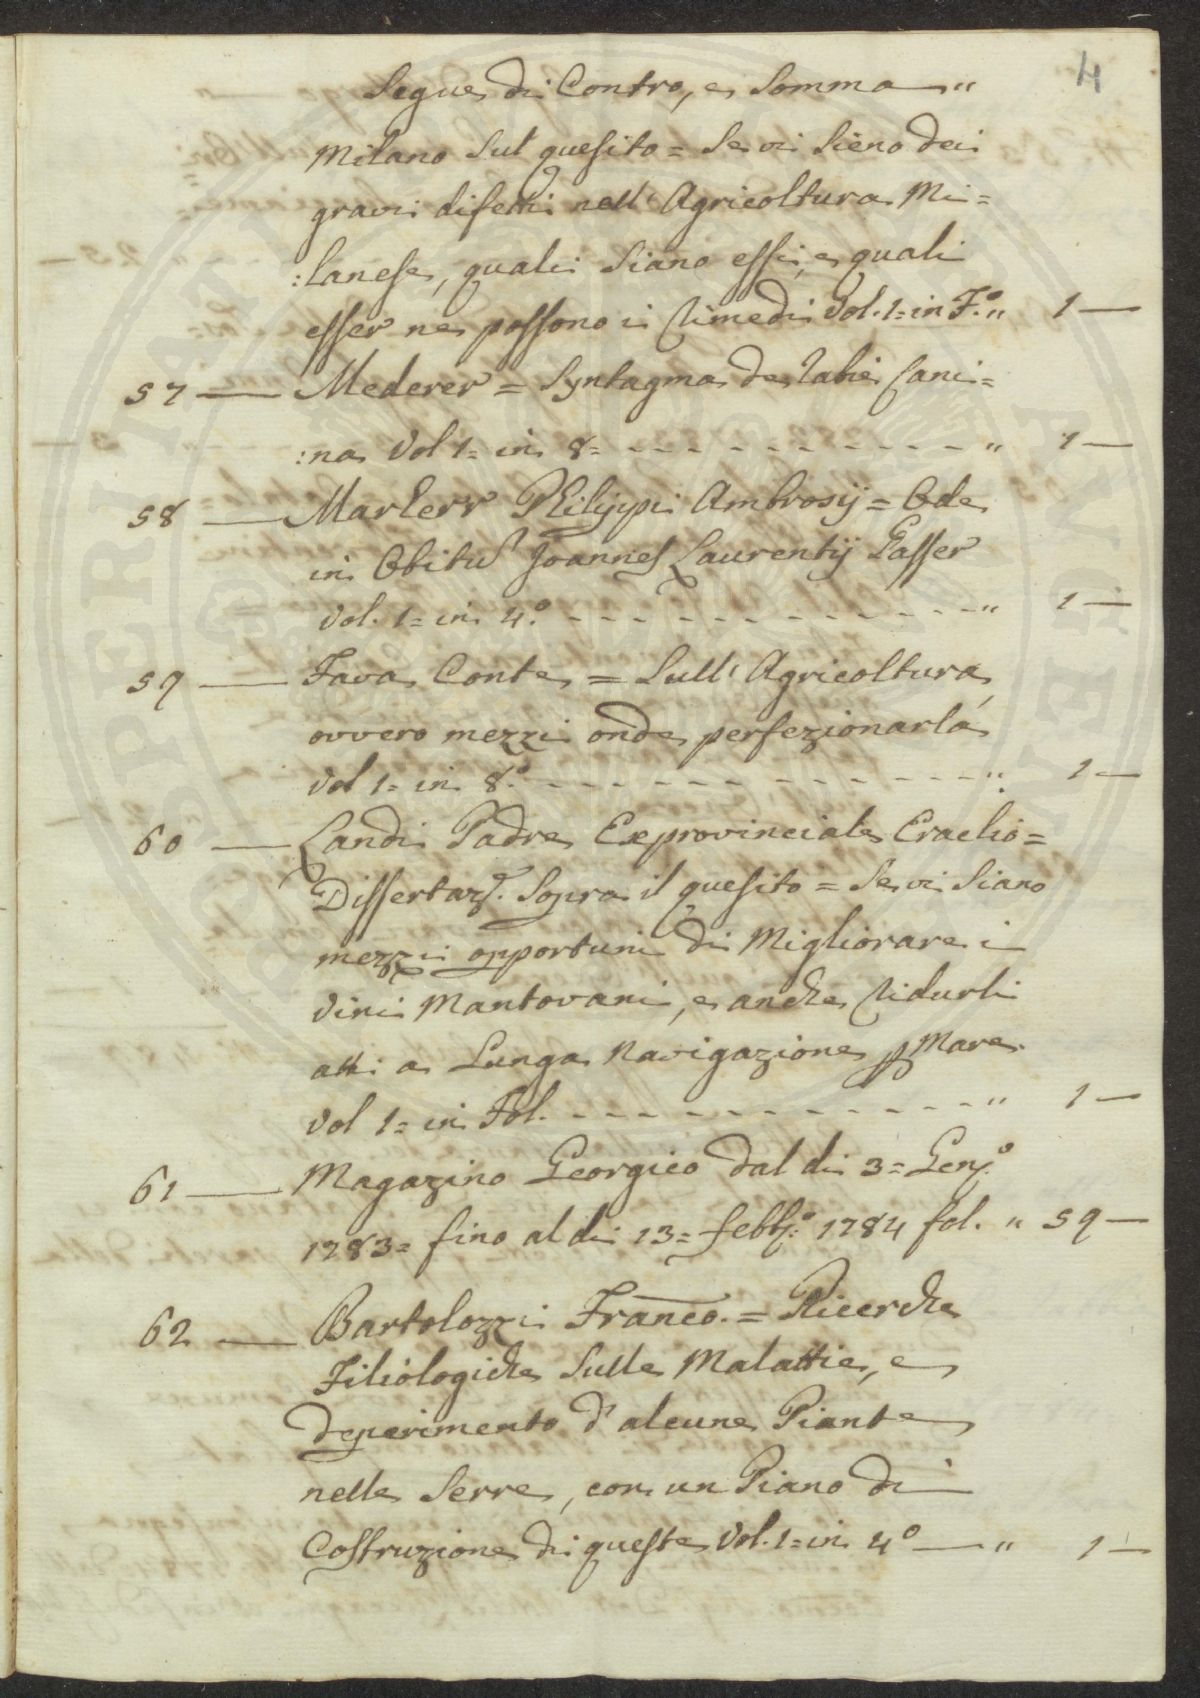 4
Segue di Contro, e Somma "
Milano Sul quesito = Se vi Sieno dei
gravi difetti nell'Agricoltura Mi=
:lanese, quali Siano essi, e quali
esser ne possono i Rimedi Vol. 1= in F.° " 1 —
57 — Mederer = Syntagma de Rabie Cani=
:na Vol 1= in 8= - - - - - - - - - - " 1 —
58 — Markerr Philippi Ambrosij = Ode
in Obitu Joannes Laurentij Gasser
Vol. 1= in 4.° - - - - - - - - - - - " 1 —
59 — Fava Conte = Sull'Agricoltura,
ovvero mezzi onde perfezionarla
Vol 1= in 8.° - - - - - - - - - - - " 1 —
60 — Landi Padre Exprovinciale Eraclio =
Dissertaz.e Sopra il quesito = Se vi Siano
mezzi opportuni di Migliorare i
Vini Mantovani, e anche Ridurli
atti a Lunga Navigazione p Mare
Vol 1= in Fol. - - - - - - - - - - - " 1 —
61 — Magazino Georgico dal di 3= Gen.°
1783= fino al di 13= Febb.° 1784 fol. " 59 —
62 — Bartolozzi Franco. = Ricerche
Filiologiche Sulle Malattie, e
deperimento d'alcune Piante
nelle Serre, con un Piano di
Costruzione di queste Vol. 1= in 4° — " 1 —
PERIAT
AVGEM